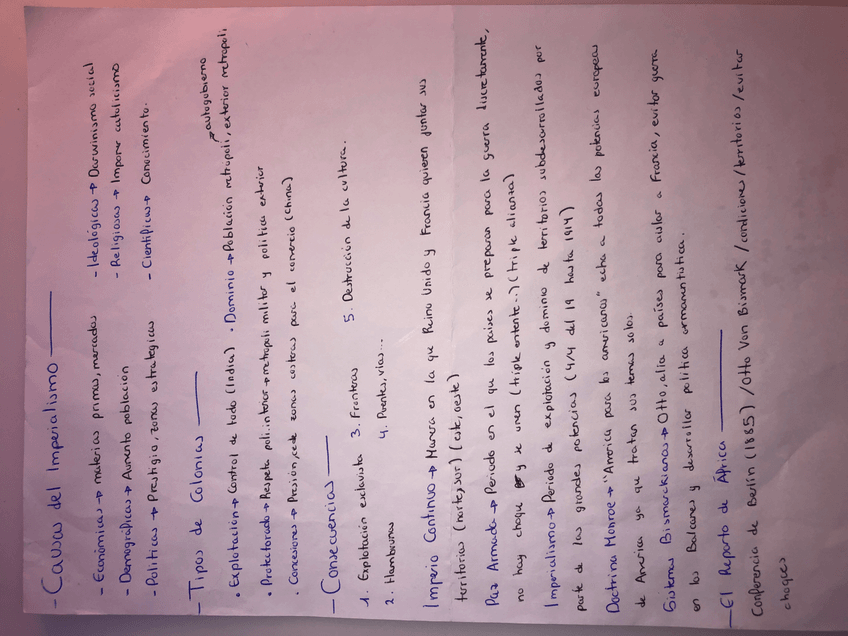 - Causas del Imperialismo
- Económicas → materias primas, mercados - Ideológicas → Darwinismo social
- Demográficas → Aumento población - Religiosas → Imponer catolicismo
- Políticas → Prestigio, zonas estratégicas - Científicas → Conocimiento.
- Tipos de Colonias
→ autogobierno
• Explotación → Control de todo (India) • Dominio → Población metropoli, exterior metropoli
• Protectorado → Respeta poli. interior → metropoli militar y política exterior
• Concesiones → Presión, cede zonas costeras para el comercio (China)
- Consecuencias
1. Explotación esclavista 3. Fronteras 5. Destrucción de la cultura.
2. Hambrunas 4. Puentes, vías...
Imperio Continuo → Manera en la que Reino Unido y Francia quieren juntar sus
territorios (norte, sur) (este, oeste)
Paz Armada → Periodo en el que los países se preparan para la guerra discretamente,
no hay choque y se unen (triple entente..) (triple alianza)
Imperialismo → Periodo de explotación y dominio de territorios subdesarrollados por
parte de las grandes potencias (4/4 del 19 hasta 1914)
Doctrina Monroe → "America para los americanos" echa a todas las potencias europeas
de America ya que tratan sus temas solos.
Sistemas Bismarckianos → Otto, alia a países para aislar a Francia, evitar guerra
en los Balcanes y desarrollar política armamentística.
- El Reparto de África
Conferencia de Berlín (1885) / Otto Von Bismark / condiciones / territorios / evitar
choques